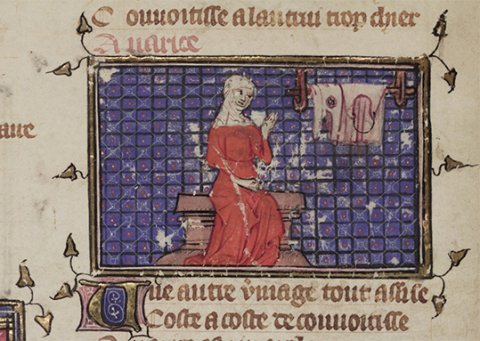 Couuoitisse a lautrui trop chier
Auarice
Une autre ymage tout assise
Coste a coste de couuoitisse